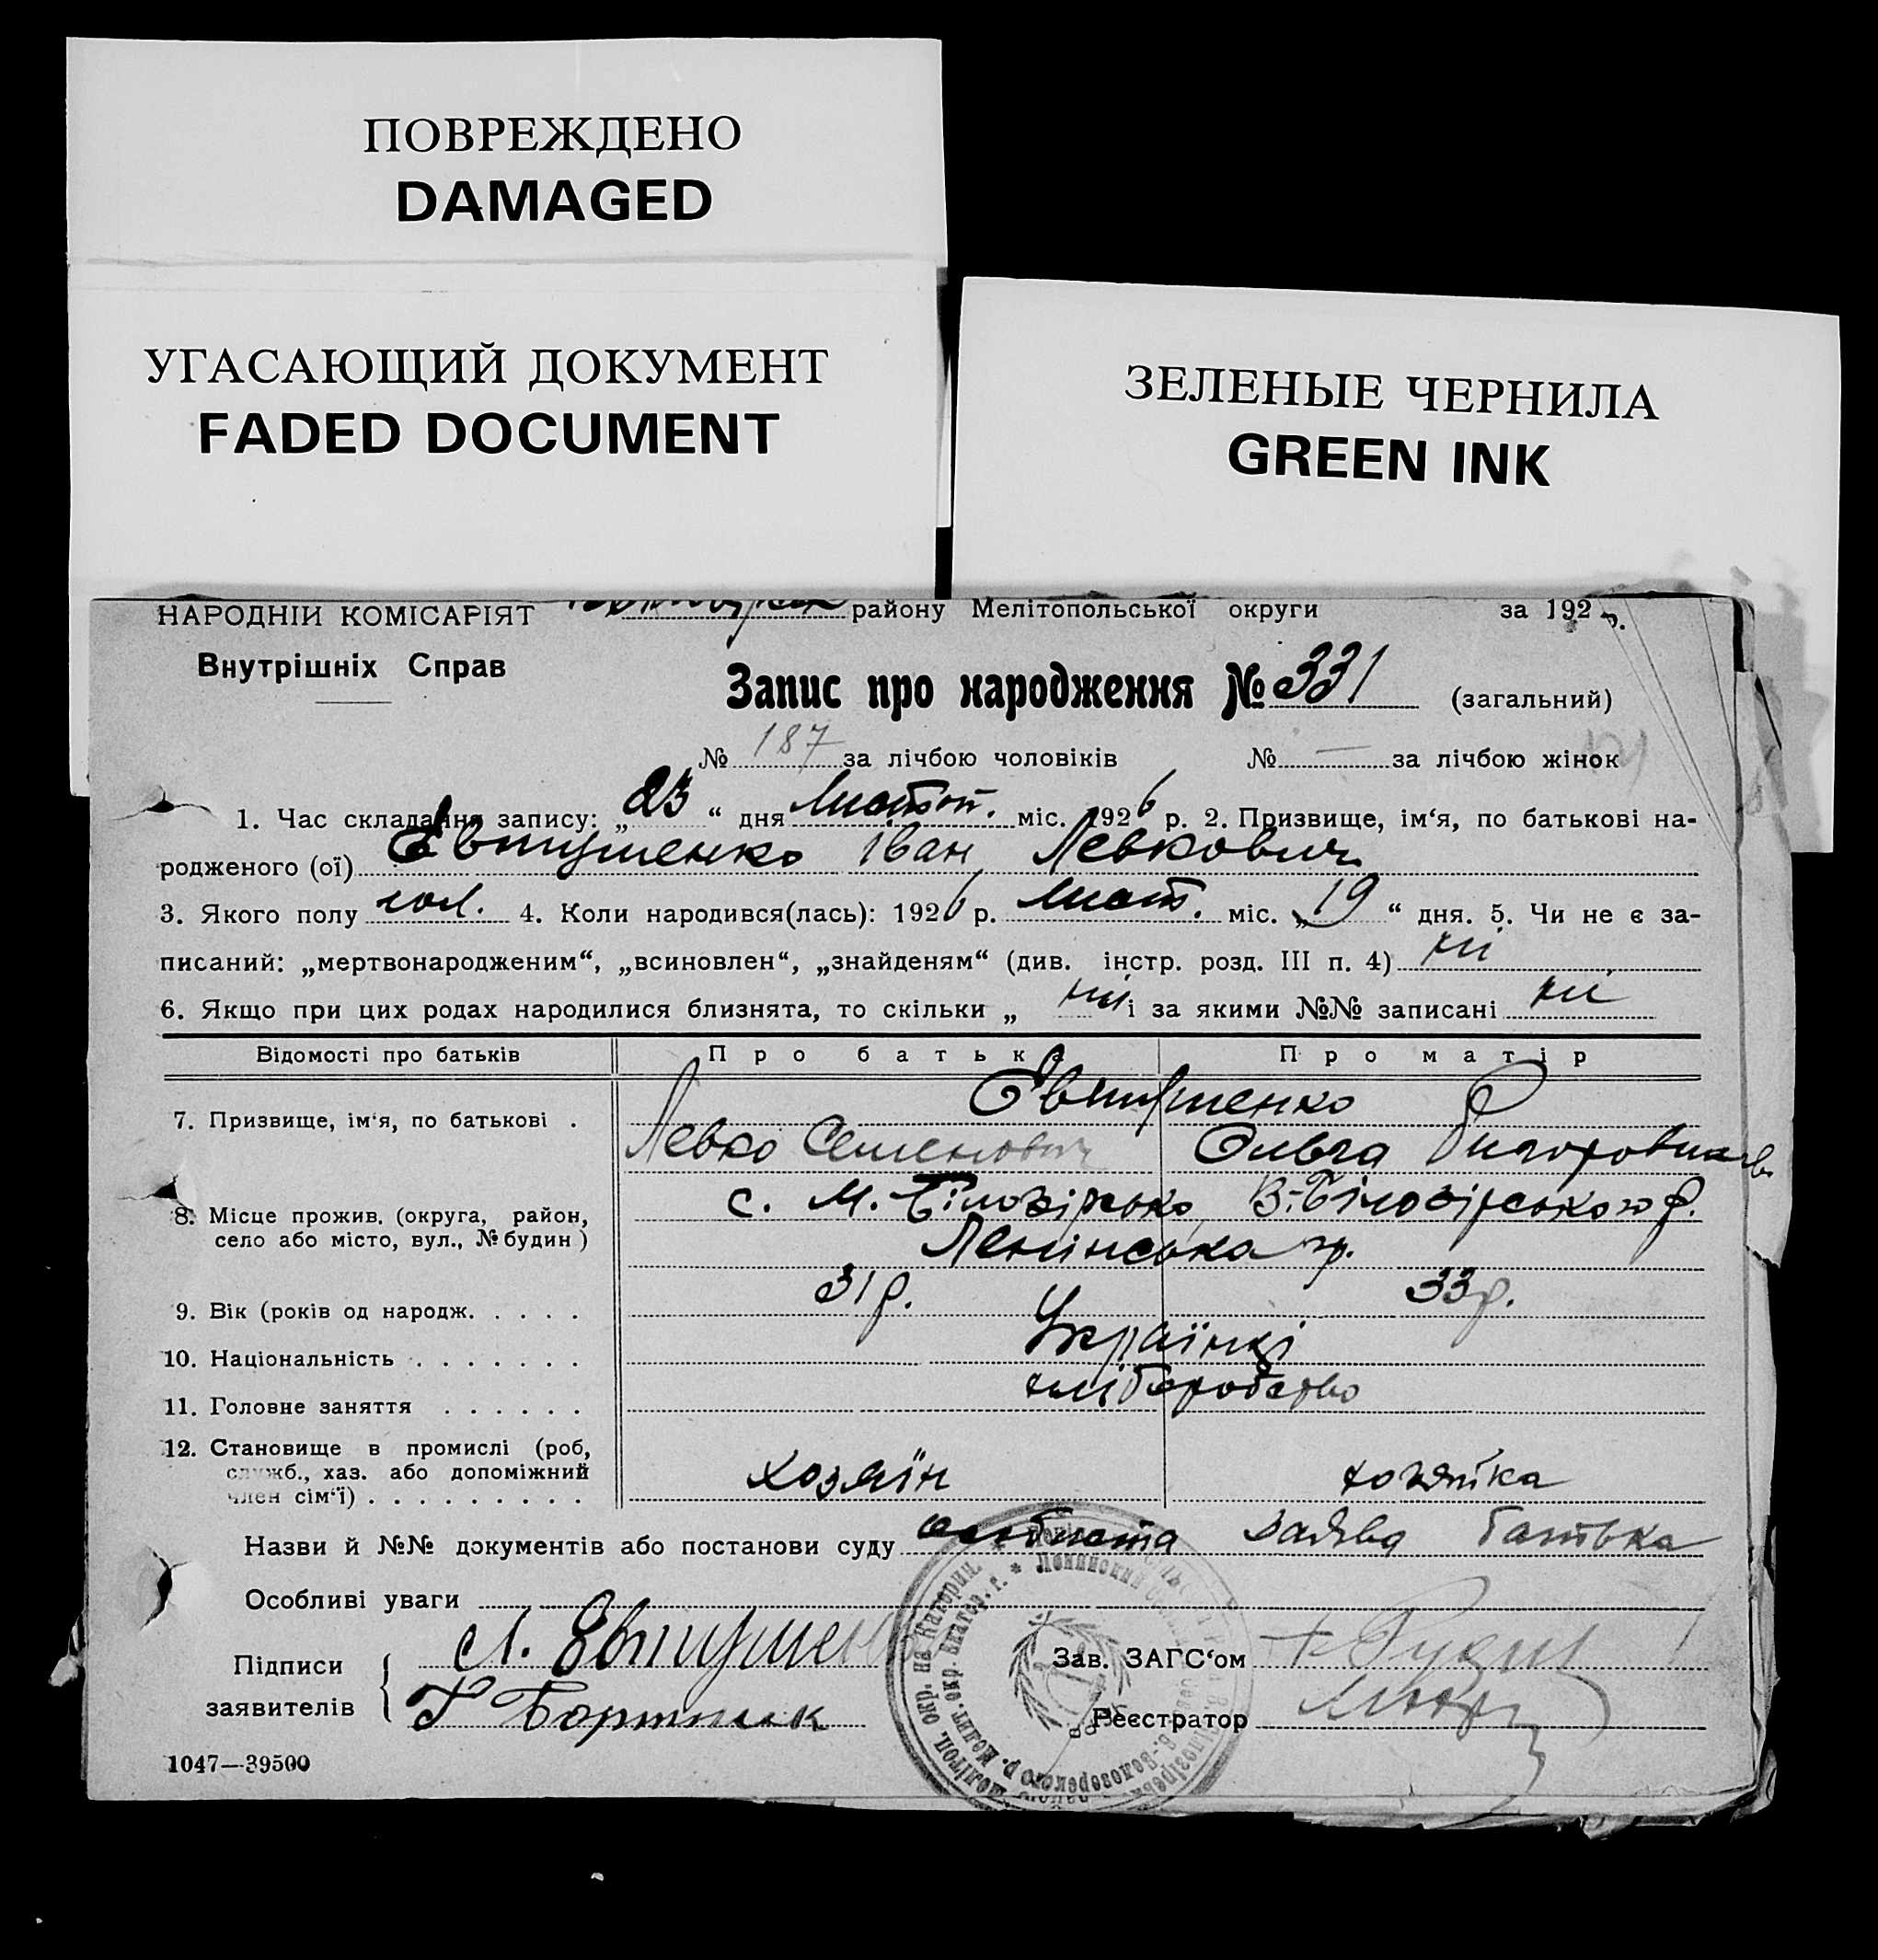 ПОВРЕЖДЕНО
DAMAGED
УГАСАЮЩИЙ ДОКУМЕНТ
FADED DOCUMENT
ЗЕЛЕНЫЕ ЧЕРНИЛА
GREEN INK
НАРОДНІЙ КОМІСАРІЯТ району Мелітопольської округи за 192
Внутрішніх Справ
Запис про народження № 331 (загальний)
№ 187 за лічбою чоловіків № — за лічбою жінок
1. Час складання запису: „23“ дня Листоп. міс. 1926 р. 2. Призвище, ім‘я, по батькові на-
родженого (ої) Євтушенко Іван Левкович
3. Якого полу чол. 4. Коли народився(лась): 1926 р. лист. міс. „19“ дня. 5. Чи не є за-
писаний: „мертвонародженим“, „всиновлен“, „знайденям“ (див. інстр. розд. III п. 4) ні
6. Якщо при цих родах народилися близнята, то скільки „ ні і за якими №№ записані ні
Відомості про батьків Про батька Про матір
Євтушенко
7. Призвище, ім‘я, по батькові .
Левко Семенович Ольга
с. М. Білозірсько, В.-Білозірського р.
8. Місце прожив. (округа, район,
село або місто, вул., № будин)
Ленінська
9. Вік (років од народж. . . . . 31 р. 33 р.
10. Національність . . . . . . . Українці
11. Головне заняття . . . . . . хліборобство
12. Становище в промислі (роб,
служб., хаз. або допоміжний
член сім‘ї) . . . . . . . . . Хозяїн хозяйка
Назви й №№ документів або постанови суду особиста заява батька
Особливі уваги
Підписи
заявителів
Л. Євтушен
Г Бортник
Зав. ЗАГС‘ом
Реєстратор
1047—39500